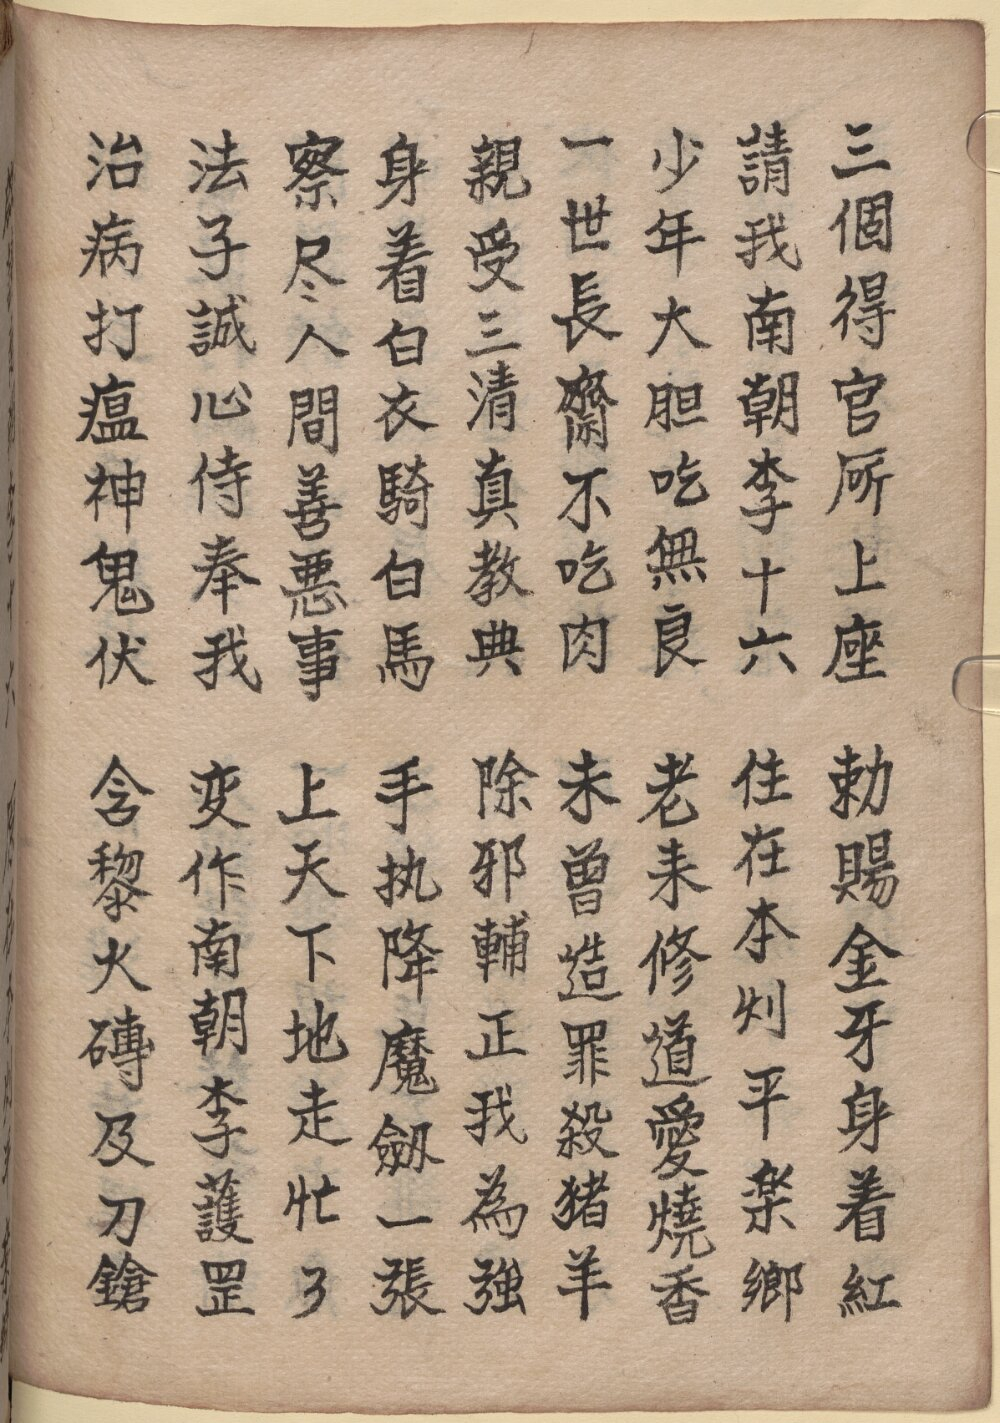 三個得官所上座 勅賜金牙身着紅
請我南朝李十六 住在本州平楽鄉
少年大胆吃無良 老来修道愛燒香
一世長齋不吃肉 未曾造罪殺猪羊
親受三清真教典 除邪輔正我為強
身着白衣騎白馬 手执降魔劔一張
察尽人間善悪事 上天下地走忙了
法子誠心侍奉我 变作南朝李護罡
治病打瘟神鬼伏 含黎火磚及刀鎗